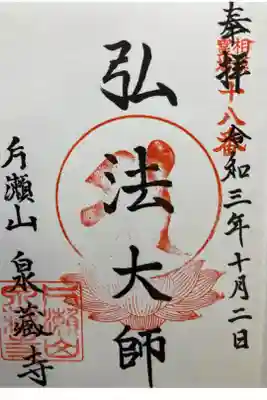 奉拝
十八番
令和三年十月二日
弘法大師
片瀬山
泉蔵寺